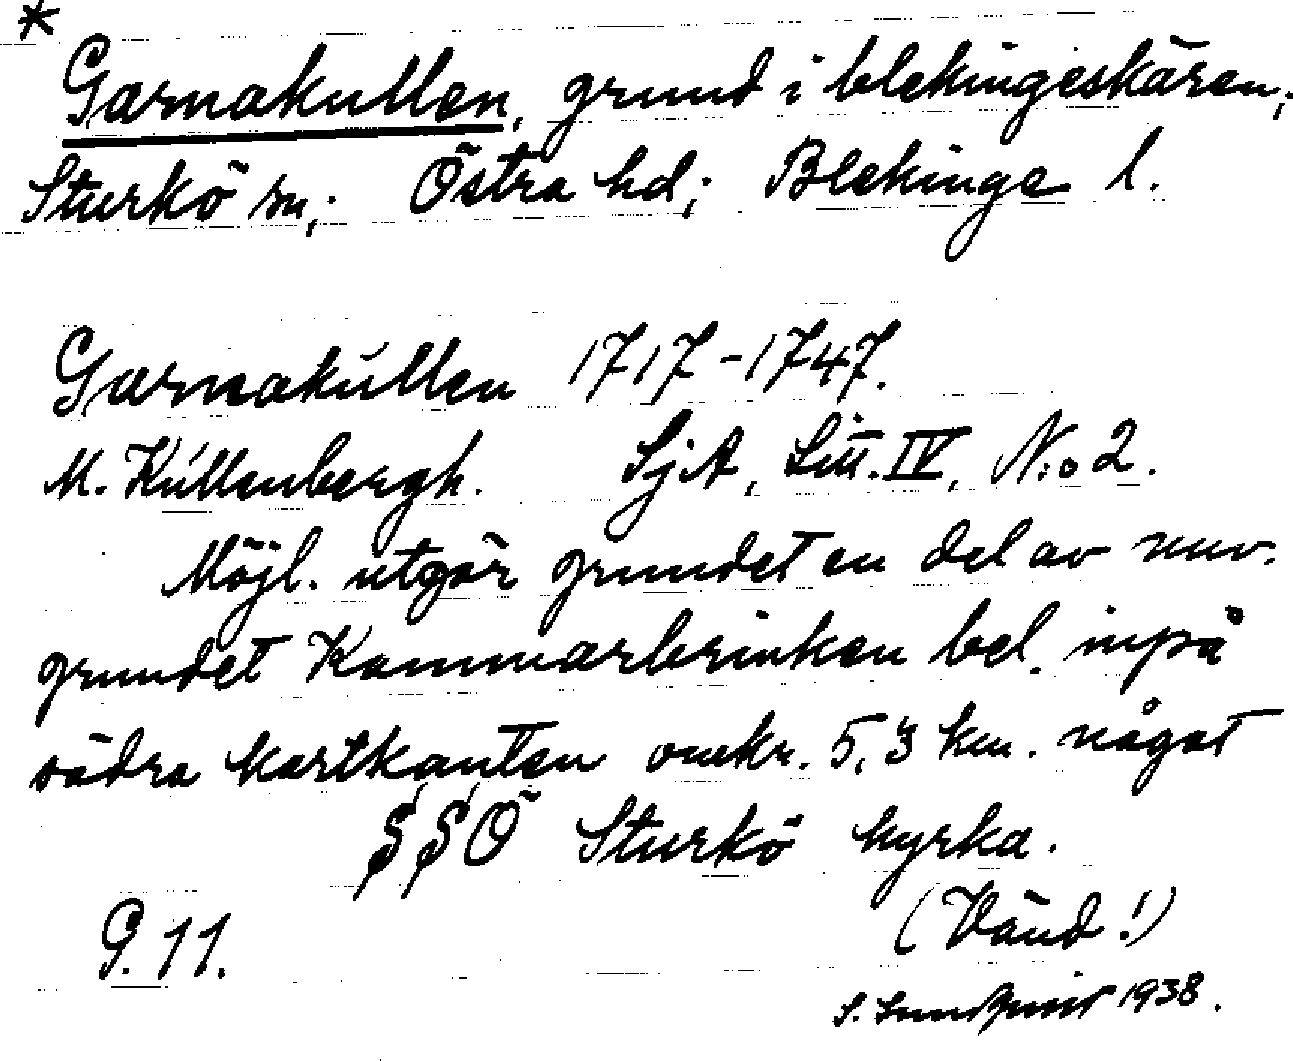 *
Garnakullen, grund i blekingeskären;
Sturkö sn; Östra hd; Blekinge l.
Garnakullen 1717-1747.
M. Kullenbergh. SjA, Litt. IV, N:o 2.
Möjl. utgör grundet en del av nuv.
grundet Kammarbrinken bel. inpå
södra kartkanten omkr. 5,3 km. något
SSÖ Sturkö kyrka.
(Vänd!)
G. 11.
S. 1938.